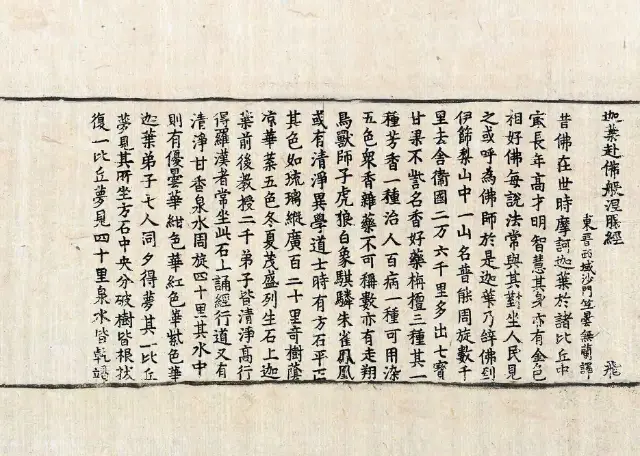 迦葉赴佛般涅槃經 飛
東晋西域沙門竺曇無蘭譯
昔佛在世時摩訶迦葉於諸比丘中
㝡長年高才明智慧其身亦有金色
相好佛每説法常與其對坐人民見
之或呼為佛師於是迦葉乃辝佛到
伊篩梨山中一山名普能周旋數千
里去舍衞國二万六千里多出七寶
甘果不訾名香好藥栴檀三種其一
種芳香一種治人百病一種可用染
五色衆香雜藥不可稱數亦有走翔
鳥獸師子虎狼白象騏驎朱雀鳳凰
或有清淨異學道士時有方石平正
其色如琉璃縱廣百二十里奇樹蔭
凉華葉五色冬夏茂盛列生石上迦
葉前後教授二千弟子皆清淨高行
得羅漢者常坐此石上誦經行道又有
清淨甘香泉水周旋四十里其水中
則有優曇華紺色華紅色華紫色華
迦葉弟子七人同夕得夢其一比丘
夢見其所坐方石中央分破樹皆根拔
復一比丘夢見四十里泉水皆乾竭